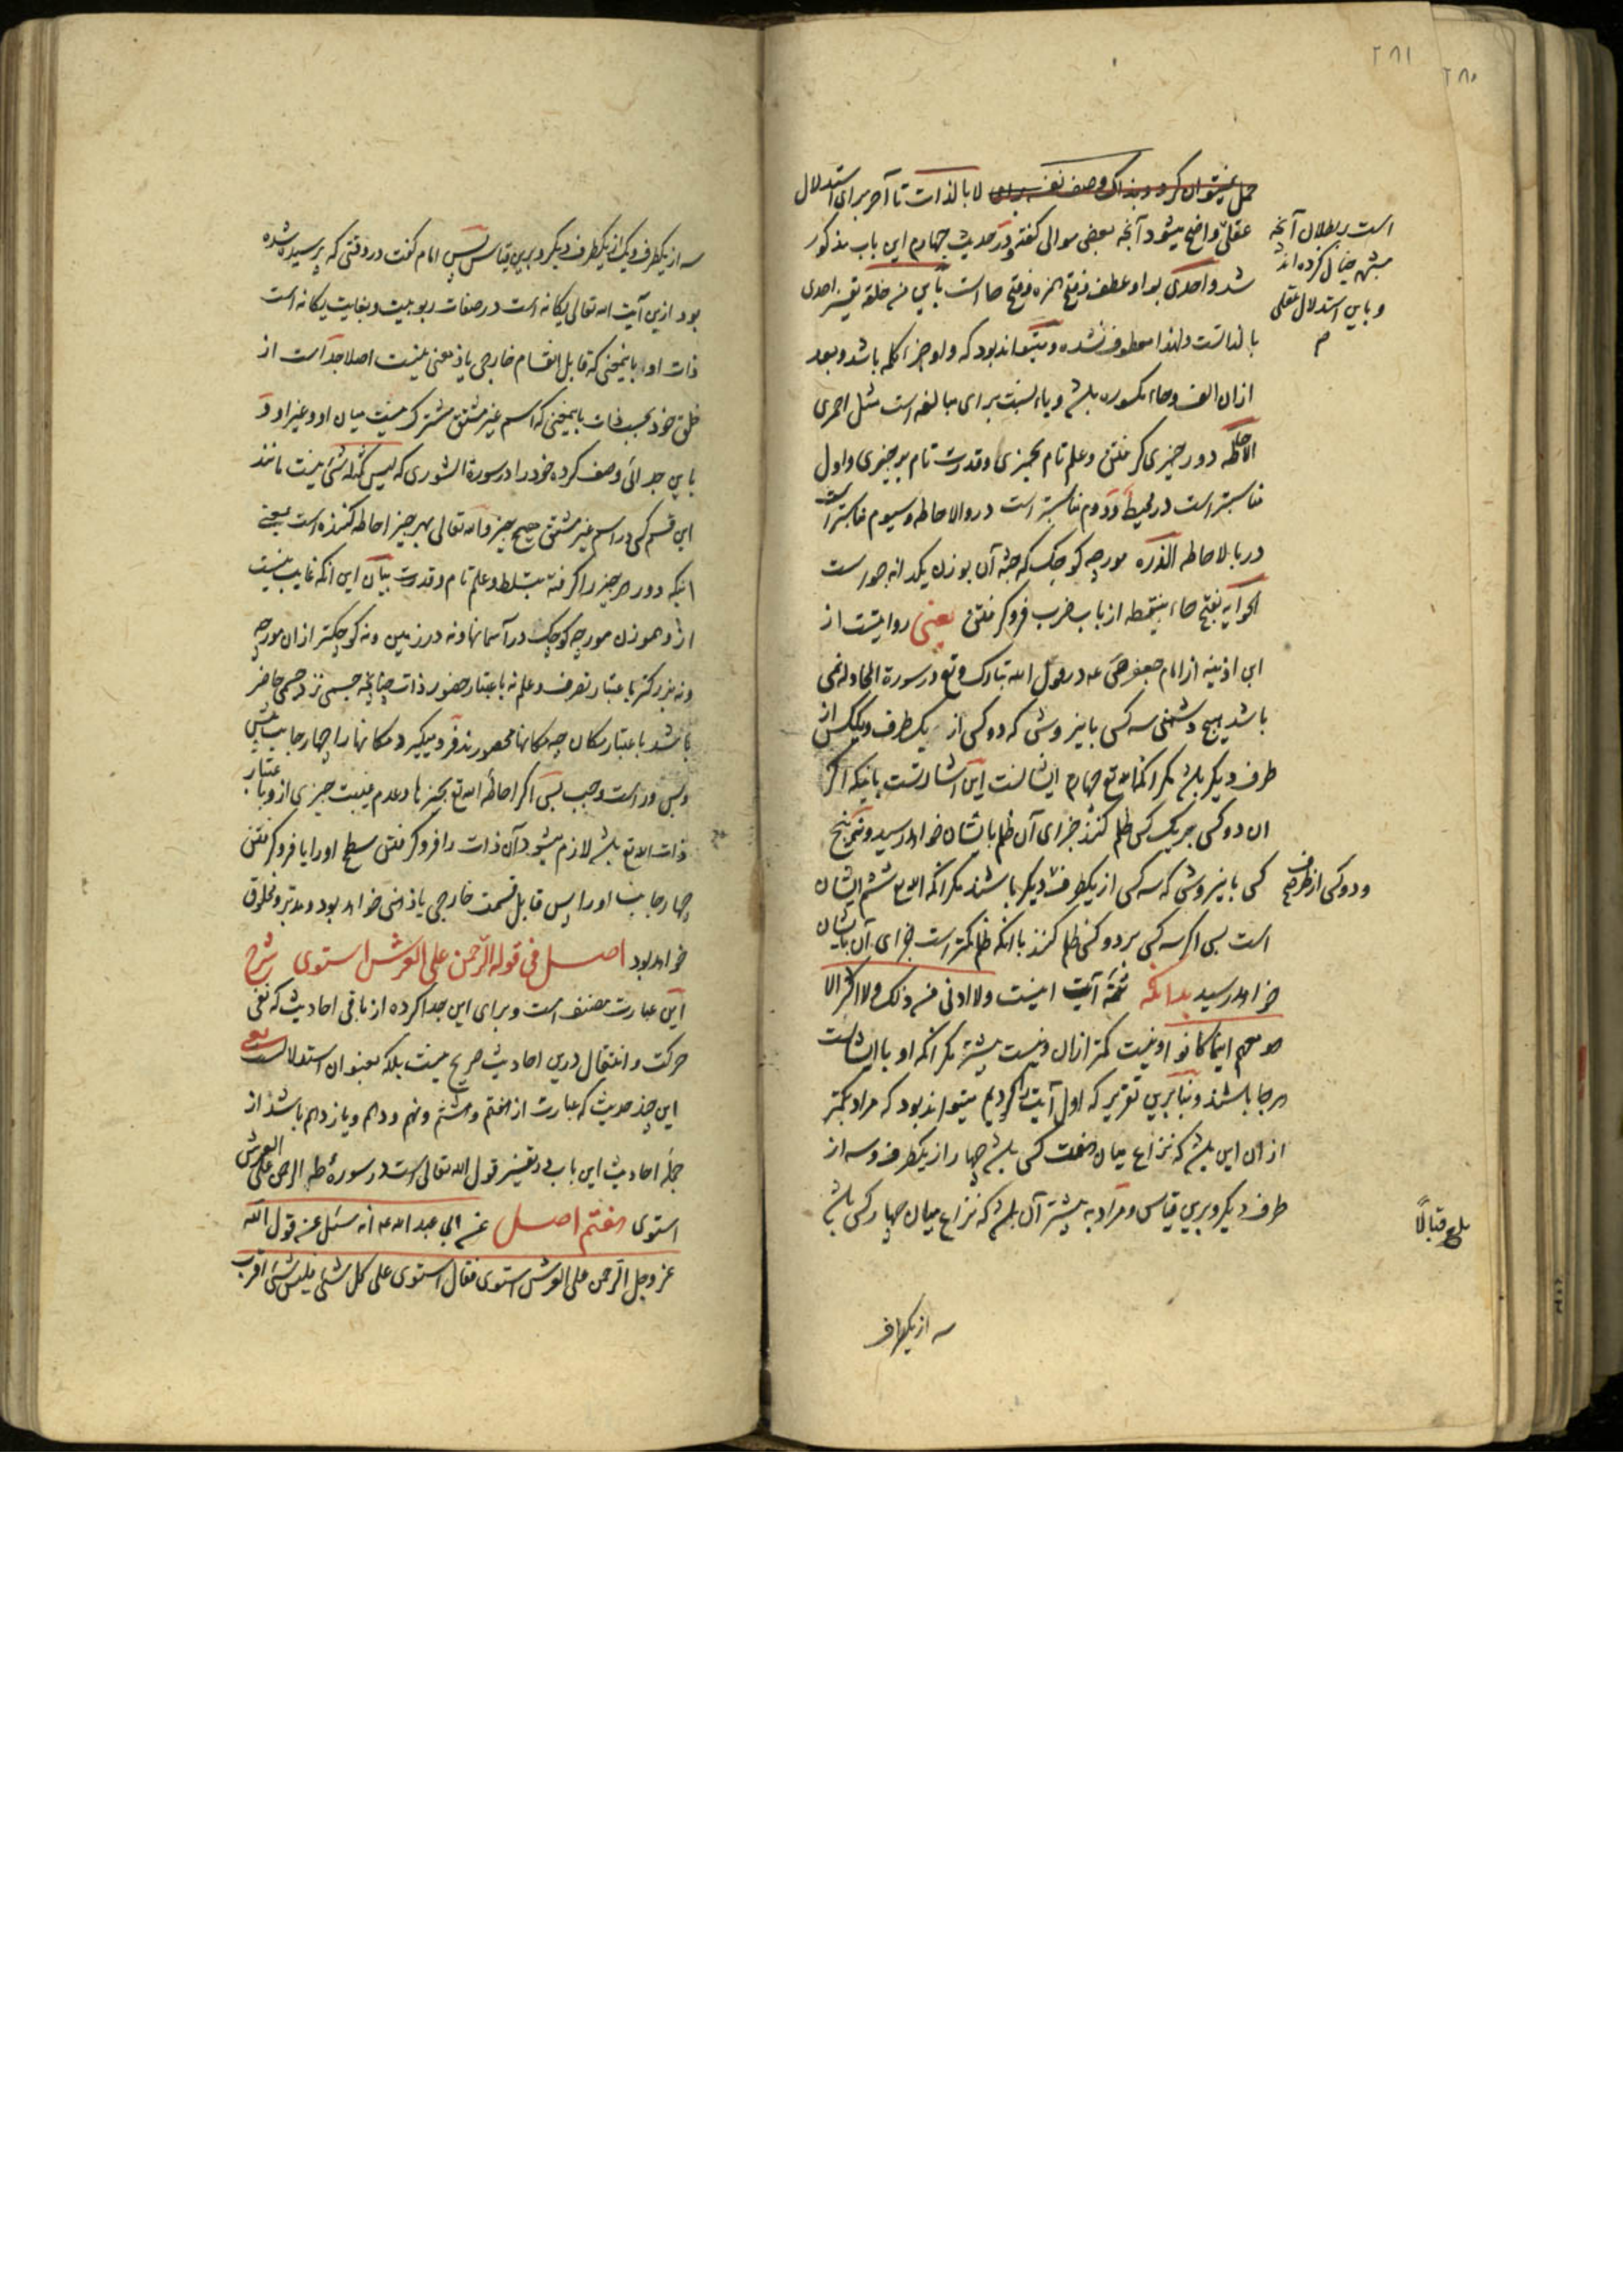 ۲۸۱
۲۸۰
حمل نمیتوان کرد لا بالذات تا آخر برای استدلال
عقلی واضح میشود آنچه بعضی موالی گفته ودر حدیث چهارم این باب مذکور
شد واحدی بواو عطف وفتح همزه وفتح حا است باین من خلقه تفسیر احدی
بالذاتست ولهذا معطوف نشده ومیتواند بود که واو جزء کلمه باشد وبعد
ازان الف وحاء مکسوره باشد ویاء نسبت برای مبالغه است مثل احمری
الاحاطه دور چیزی گرفتن وعلم تام بچیزی وقدرت تام بر چیزی واول
مناسبتر است در محیط ودوم مناسبتر است در والاحاطه وسیوم مناسبتر است
در بالاحاطه الذره مورچه کوچک که جثه آن بوزن یکدانه جو است
الحوایه بفتح حاء بینقطه از باب ضرب فرو گرفتن یعنی روایتست از
ابن اذینه از امام جعفر صادق ع در قول الله تبارک وتع در سورة المجادله نمی
باشد هیچ دشمنی سه کس باینروش که دو کس از یکطرف ویککس از
طرف دیگر باشد مگر آنکه الله تع چهارم ایشانست این اشارتست باینکه اگر
ان دو کس بر یک کس ظلم کنند جزای آن ظلم بایشان خواهد رسید ونه پنج
کس باینروش که سه کس از یکطرف دیگر باشند مگر آنکه الله تع ششم ایشان
است پس اگر سه کس بر دو کس ظلم کنند با آنکه ظلم کمتر است جزای آن بایشان
خواهد رسید بدانکه تتمه آیت اینست ولا ادنی من ذلک ولا اکثر الا
هو معهم اینما کانوا ونیست کمتر ازان ونیست بیشتر مگر آنکه او با ایشانست
هر جا باشند وبنابرین تقریر که اول آیت را کردیم میتواند بود که مراد بکمتر
ازان این باشد که نزاع میان هفت کس باشد چهار از یکطرف وسه از
طرف دیگر وبرین قیاس ومراد به بیشتر آن باشد که نزاع میان چهار کس باشد
سه از یکطرف
است بر بطلان آنچه
مشبهه خیال کرده‌اند
وباین استدلال عقلی
ودو کس از طرف
بلغ قبالًا
سه از یکطرف ویک از یکطرف دیگر وبرین قیاس پس امام گفت در وقتی که پرسیده شده
بود ازین آیت الله تعالی یگانه است در صفات ربوبیت وبغایت یگانه است
ذات او باینمعنی که قابل انقسام خارجی یا ذهنی نیست اصلا جدا است از
خلق خود بحسب ذات باینمعنی که اسم غیر مشتق مشترک نیست میان او وغیر او ودر
باین جدائی وصف کرده خود را در سورة الشوری که لیس کمثله شیء نیست مانند
این قسم کسی در اسم غیر مشتق هیچ چیز والله تعالی بهر چیز احاطه کننده است یعنی
اینکه دور هر چیز را گرفته بتسلط وعلم تام وقدرت بیان این آنکه غایب نیست
ازو هموزن مورچه کوچک در آسمانها ونه در زمین ونه کوچکتر ازان مورچه
ونه بزرگتر باعتبار تصرف وعلم نه باعتبار حضور ذات چنانچه جسمی نزد جسمی حاضر
باشد باعتبار مکان چه مکانها محصورند فرو میگیرد مکانها را چهار جانب پیش
وپس وراست وچپ پس اگر احاطه الله تع بچیزها وعدم غیبت چیزی ازو باعتبار
ذات الله تع باشد لازم میشود آن ذات را فرو گرفتن سطح او را یا فرو گرفتن
چهار جانب او را پس قابل قسمت خارجی یا ذهنی خواهد بود ومدبر ومخلوق
خواهد بود اصل فی قوله الرحمن علی العرش استوی شرح
این عبارت مصنف است وبرای این جدا کرده از باقی احادیث که نفی
حرکت وانتقال درین احادیث صریح نیست بلکه بعنوان استدلالست یعنی
این چند حدیث که عبارت از هفتم وهشتم ونهم ودهم ویازدهم باشد از
جمله احادیث این باب در تفسیر قول الله تعالی است در سورهٔ طه الرحمن علی العرش
استوی هفتم اصل عن ابی عبد الله ع انه سئل عن قول الله
عز وجل الرحمن علی العرش استوی فقال استوی علی کل شیء فلیس شیء اقرب